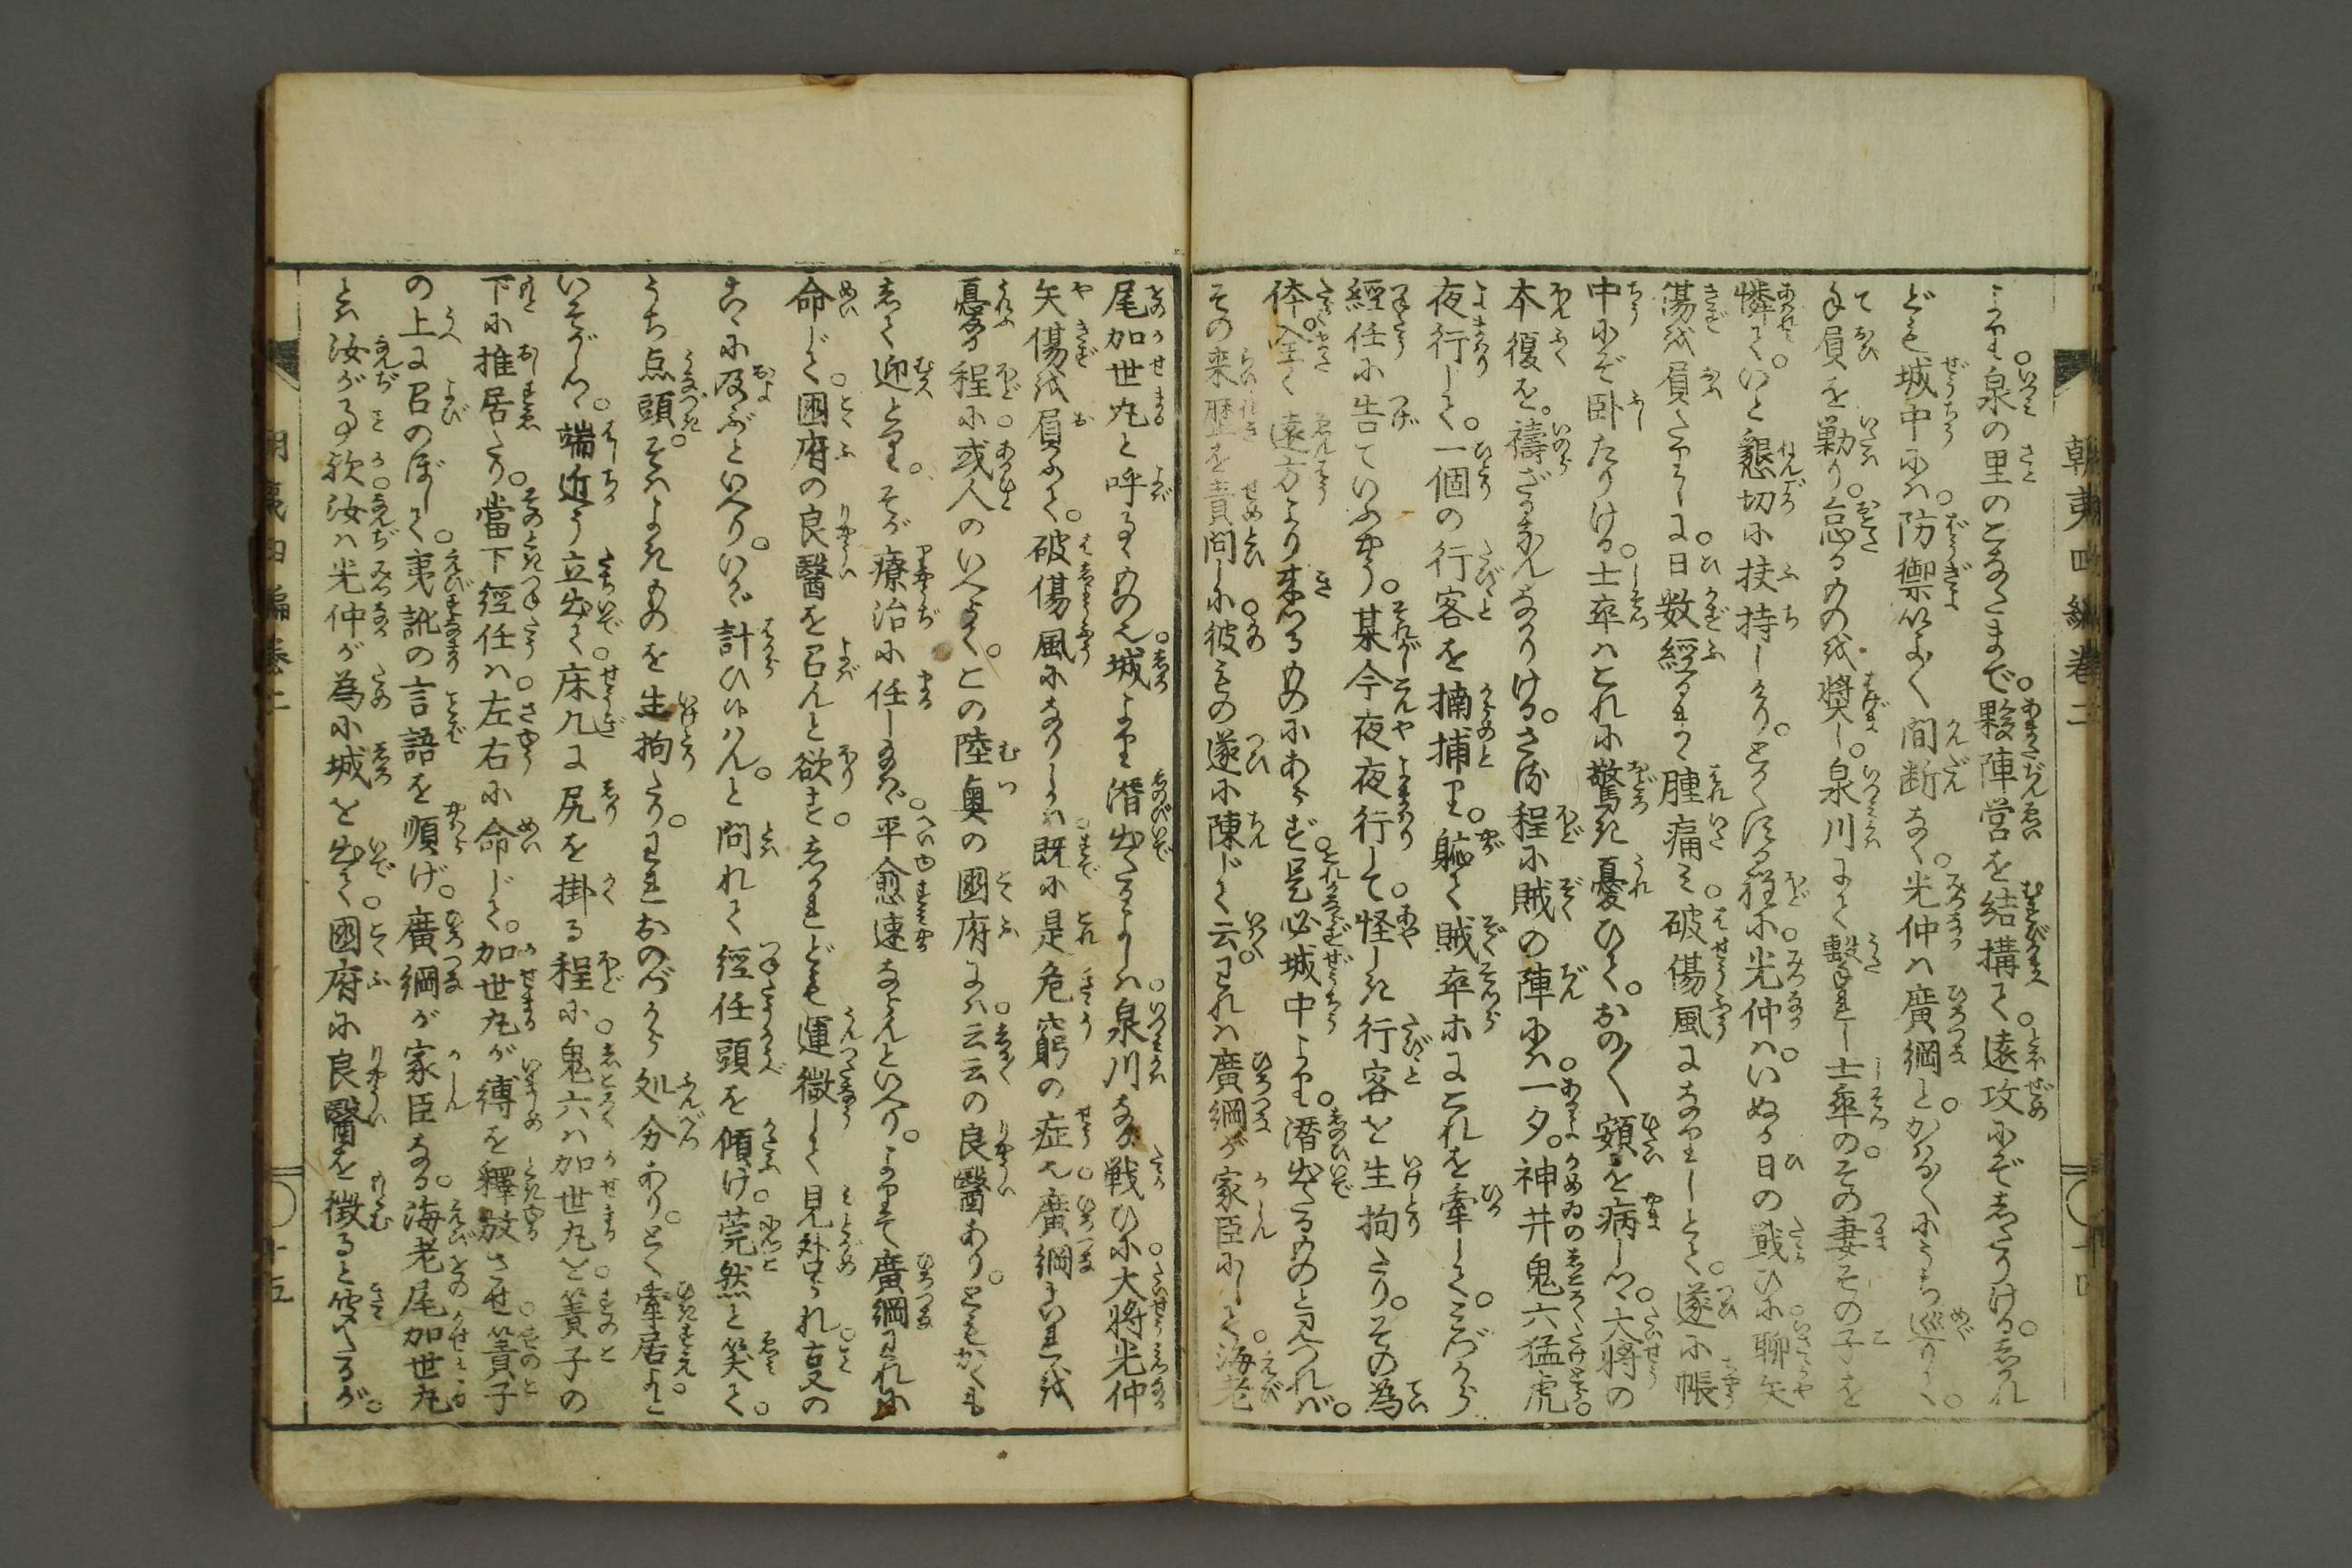 朝夷四編巻二
より。泉の里のこなたまで。夥陣営を結構て。遠攻にぞしたりける。しかれ
ども城中には。防禦よく間断なく。光仲は廣綱と。かはる〳〵にうち巡りて。
手負を勦り。怠るものを奨し。泉川にて撃れし士卒の。その妻その子を
憐て。いと懇切に扶持しけり。とかくする程に光仲は。いぬる日の戦ひに聊矢
傷を負たりしに。日数經るまゝ腫痛み。破傷風になりしとて。遂に帳
中にぞ卧たりける。士卒はこれに驚き憂ひて。おの〳〵額を病しつ。大将の
本復を。禱ざるはなかりける。さる程に賊の陣には。一夕。神井鬼六猛虎。
夜行して。一個の行客を搦捕り。軈て賊卒等にこれを牽して。みづから
經任に告ていふやう。某今夜夜行して。怪しき行客を生拘たり。その為
体。全く遠方より来れるものにあらず。是必城中より。潜出たるものと見つれば。
その来歴を責問に。彼もの遂に陳じて云云。われは廣綱が家臣にして。海老
十四
尾加世丸と呼るゝもの也。城より潜出たるよしは。泉川なる戦ひに。大将光仲
矢傷を負ふて。破傷風になりしかば。既に是危窮の症也。廣綱これを
憂る程に。或人のいへるよう。この陸奥の國府には。云云の良醫あり。ともかくも
して迎とり。そが療治に任しなば。平愈速ならんといへり。よりて廣綱われに
命じて。國府の良醫を召んと欲す。しかれども運微して見咎められ。夏の
こゝに及ぶといへり。いかゞ計ひ候はん。と問れて經任頭を傾け。莞然と笑て。
うち点頭。そはよきものを生拘たり。われおのづから処分あり。とく牽居よと
いそがしつ。端近う立出て。床几に尻を掛る程に。鬼六は加世丸を。簀子の
下に推居たり。當下經任は。左右に命じて。加世丸が縛を釋放させ。簀子
の上に召のぼして。夷訛の言語を順げ。廣綱が家臣なる。海老尾加世丸
とは汝が事歟。汝は光仲が為に城を出て。國府に良醫を徴ると聞たるが。
朝夷四編巻二
十五